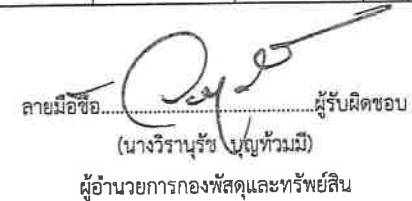 ลายมือชื่อ....................................ผู้รับผิดชอบ
(นางวิรานุรัช บุญท้วมมี)
ผู้อำนวยการกองพัสดุและทรัพย์สิน